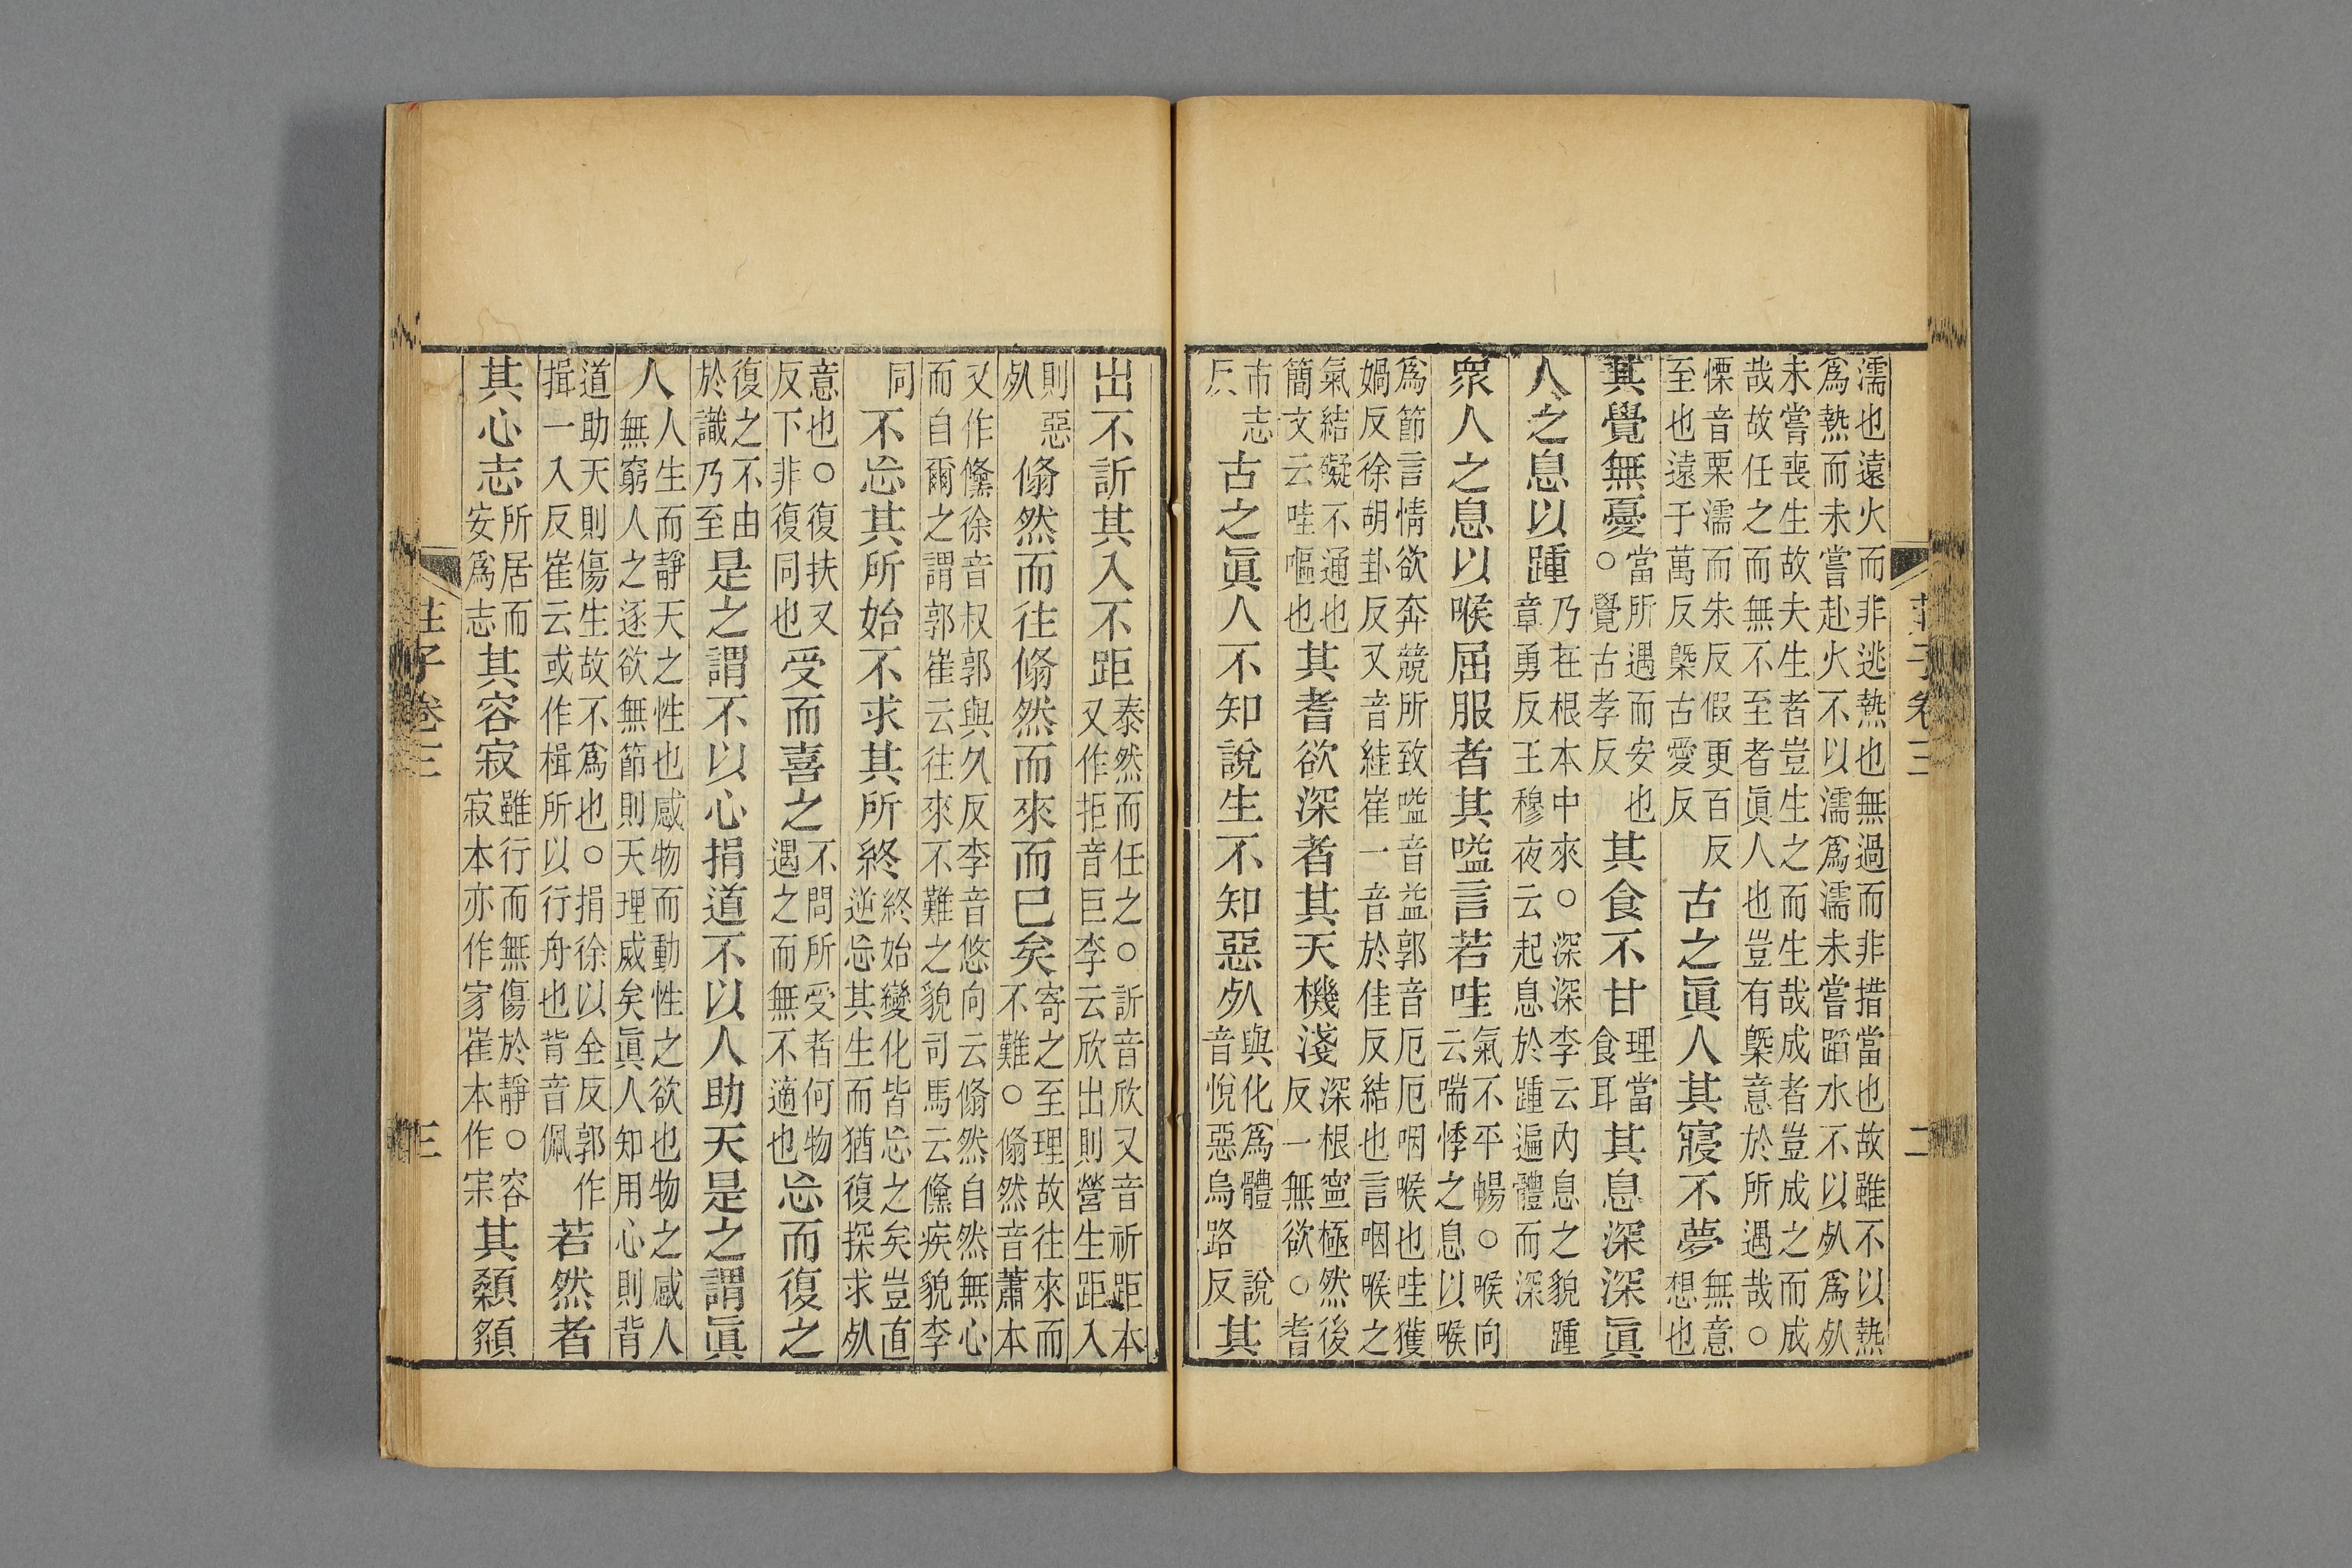 莊子卷三　二
濡也遠火而非逃熱也無過而非措當也故雖不以熱
爲熱而未嘗赴火不以濡爲濡未嘗蹈水不以死爲死
未嘗喪生故夫生者豈生之而生哉成者豈成之而成
哉故任之而無不至者眞人也豈有槩意於所遇哉○
慄音栗濡而朱反假更百反至也遠于萬反槩古愛反古之眞人其寢不夢無意想也
其覺無憂當所遇而安也○覺古孝反其食不甘理當食耳其息深深眞
人之息以踵乃在根本中來○深深李云內息之貌踵章勇反王穆夜云起息於踵遍體而深
衆人之息以喉屈服者其嗌言若哇氣不平暢○喉向云喘悸之息以喉
爲節言情欲奔競所致嗌音益郭音厄厄咽喉也哇獲
媧反徐胡卦反又音絓崔一音於佳反結也言咽喉之
氣結礙不通也簡文云哇嘔也其耆欲深者其天機淺深根寧極然後反一無欲○耆
市志反古之眞人不知說生不知惡死與化爲體說音悅惡烏路反其
出不訢其入不距泰然而任之○訢音欣又音祈距本又作拒音巨李云欣出則營生距入
則惡死翛然而往翛然而來而已矣寄之至理故往來而不難○翛然音蕭本
又作儵徐音叔郭與久反李音悠向云翛然自然無心
而自爾之謂郭崔云往來不難之貌司馬云儵疾貌李
同不忘其所始不求其所終終始變化皆忘之矣豈直逆忘其生而猶復探求死
意也○復扶又反下非復同也受而喜之不問所受者何物遇之而無不適也忘而復之
復之不由於識乃至是之謂不以心捐道不以人助天是之謂眞
人人生而靜天之性也感物而動性之欲也物之感人無窮人之逐欲無節則天理滅矣眞人知用心則背
道助天則傷生故不爲也○捐徐以全反郭作揖一入反崔云或作楫所以行舟也背音佩若然者
其心志所居而安爲志其容寂雖行而無傷於靜○容寂本亦作家崔本作宋其顙頯
莊子卷三　三